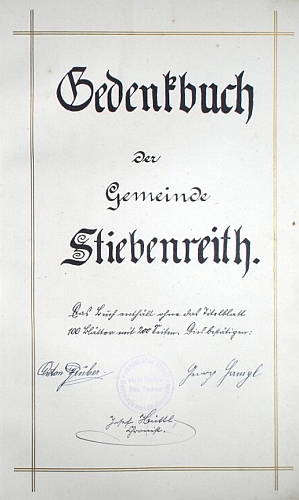 Gedenkbuch
der
Gemeinde
Stiebenreith.
Das Buch enthält ohne das Titelblatt
100 Blätter mit 200 Seiten. Dies bestätigen:
Anton Georg
Josef Hüttl